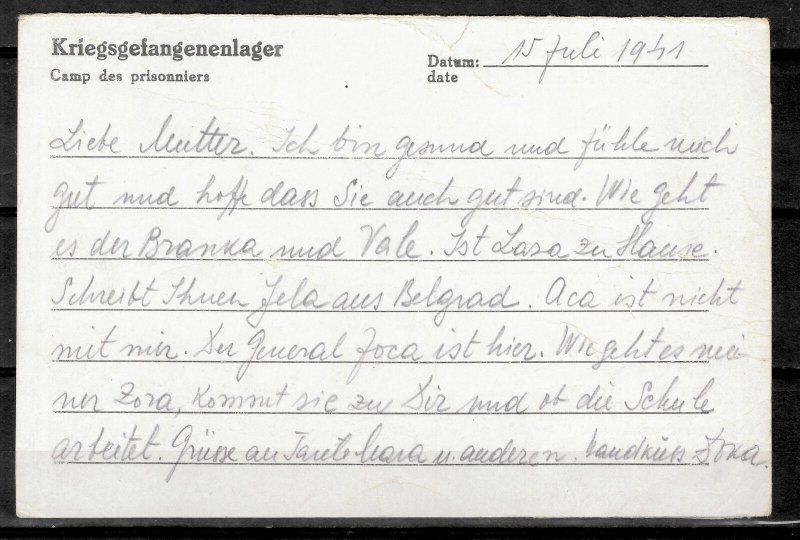 Kriegsgefangenenlager
Camp des prisonniers
Datum: 15 Juli 1941
date
Liebe Mutter. Ich bin gesund und fühle mich
gut und hoffe dass Sie auch gut sind. Wie geht
es der Branka und Vale. Ist Lasa zu Hause.
Schreibt Ihnen Jela aus Belgrad. Aca ist nicht
mit mir. Der General Joca ist hier. Wie geht es mei
ner Zora, kommt sie zu Dir und ob die Schule
arbeitet. Grüsse an Tante Mara u. anderen. Handkuss